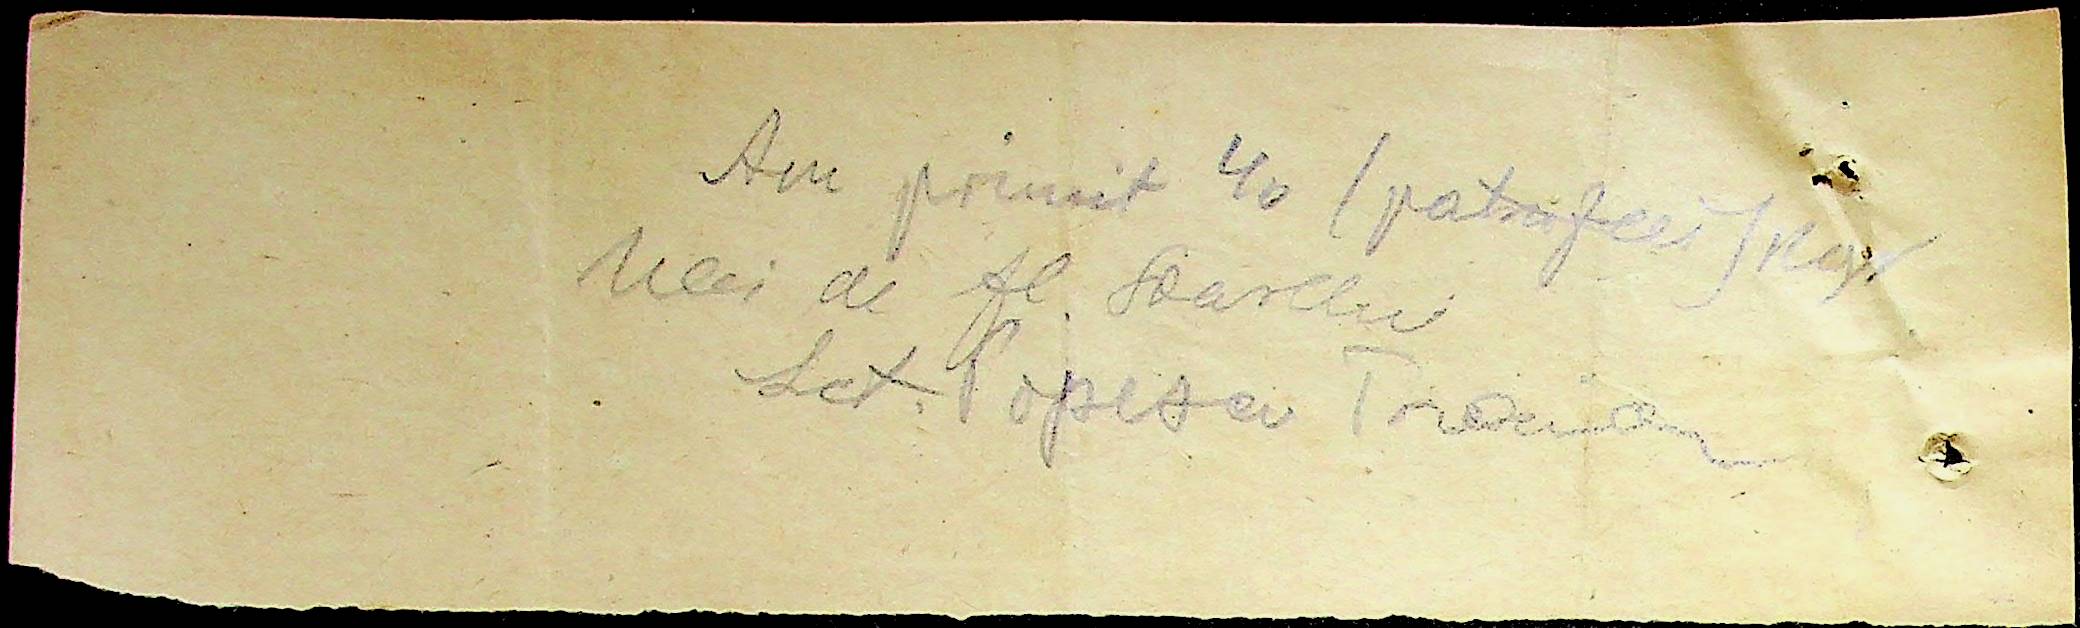 Am primit 40 (patruzeci) Kgr
Ulei de fl. Soarelui
Sct. Popescu Traian